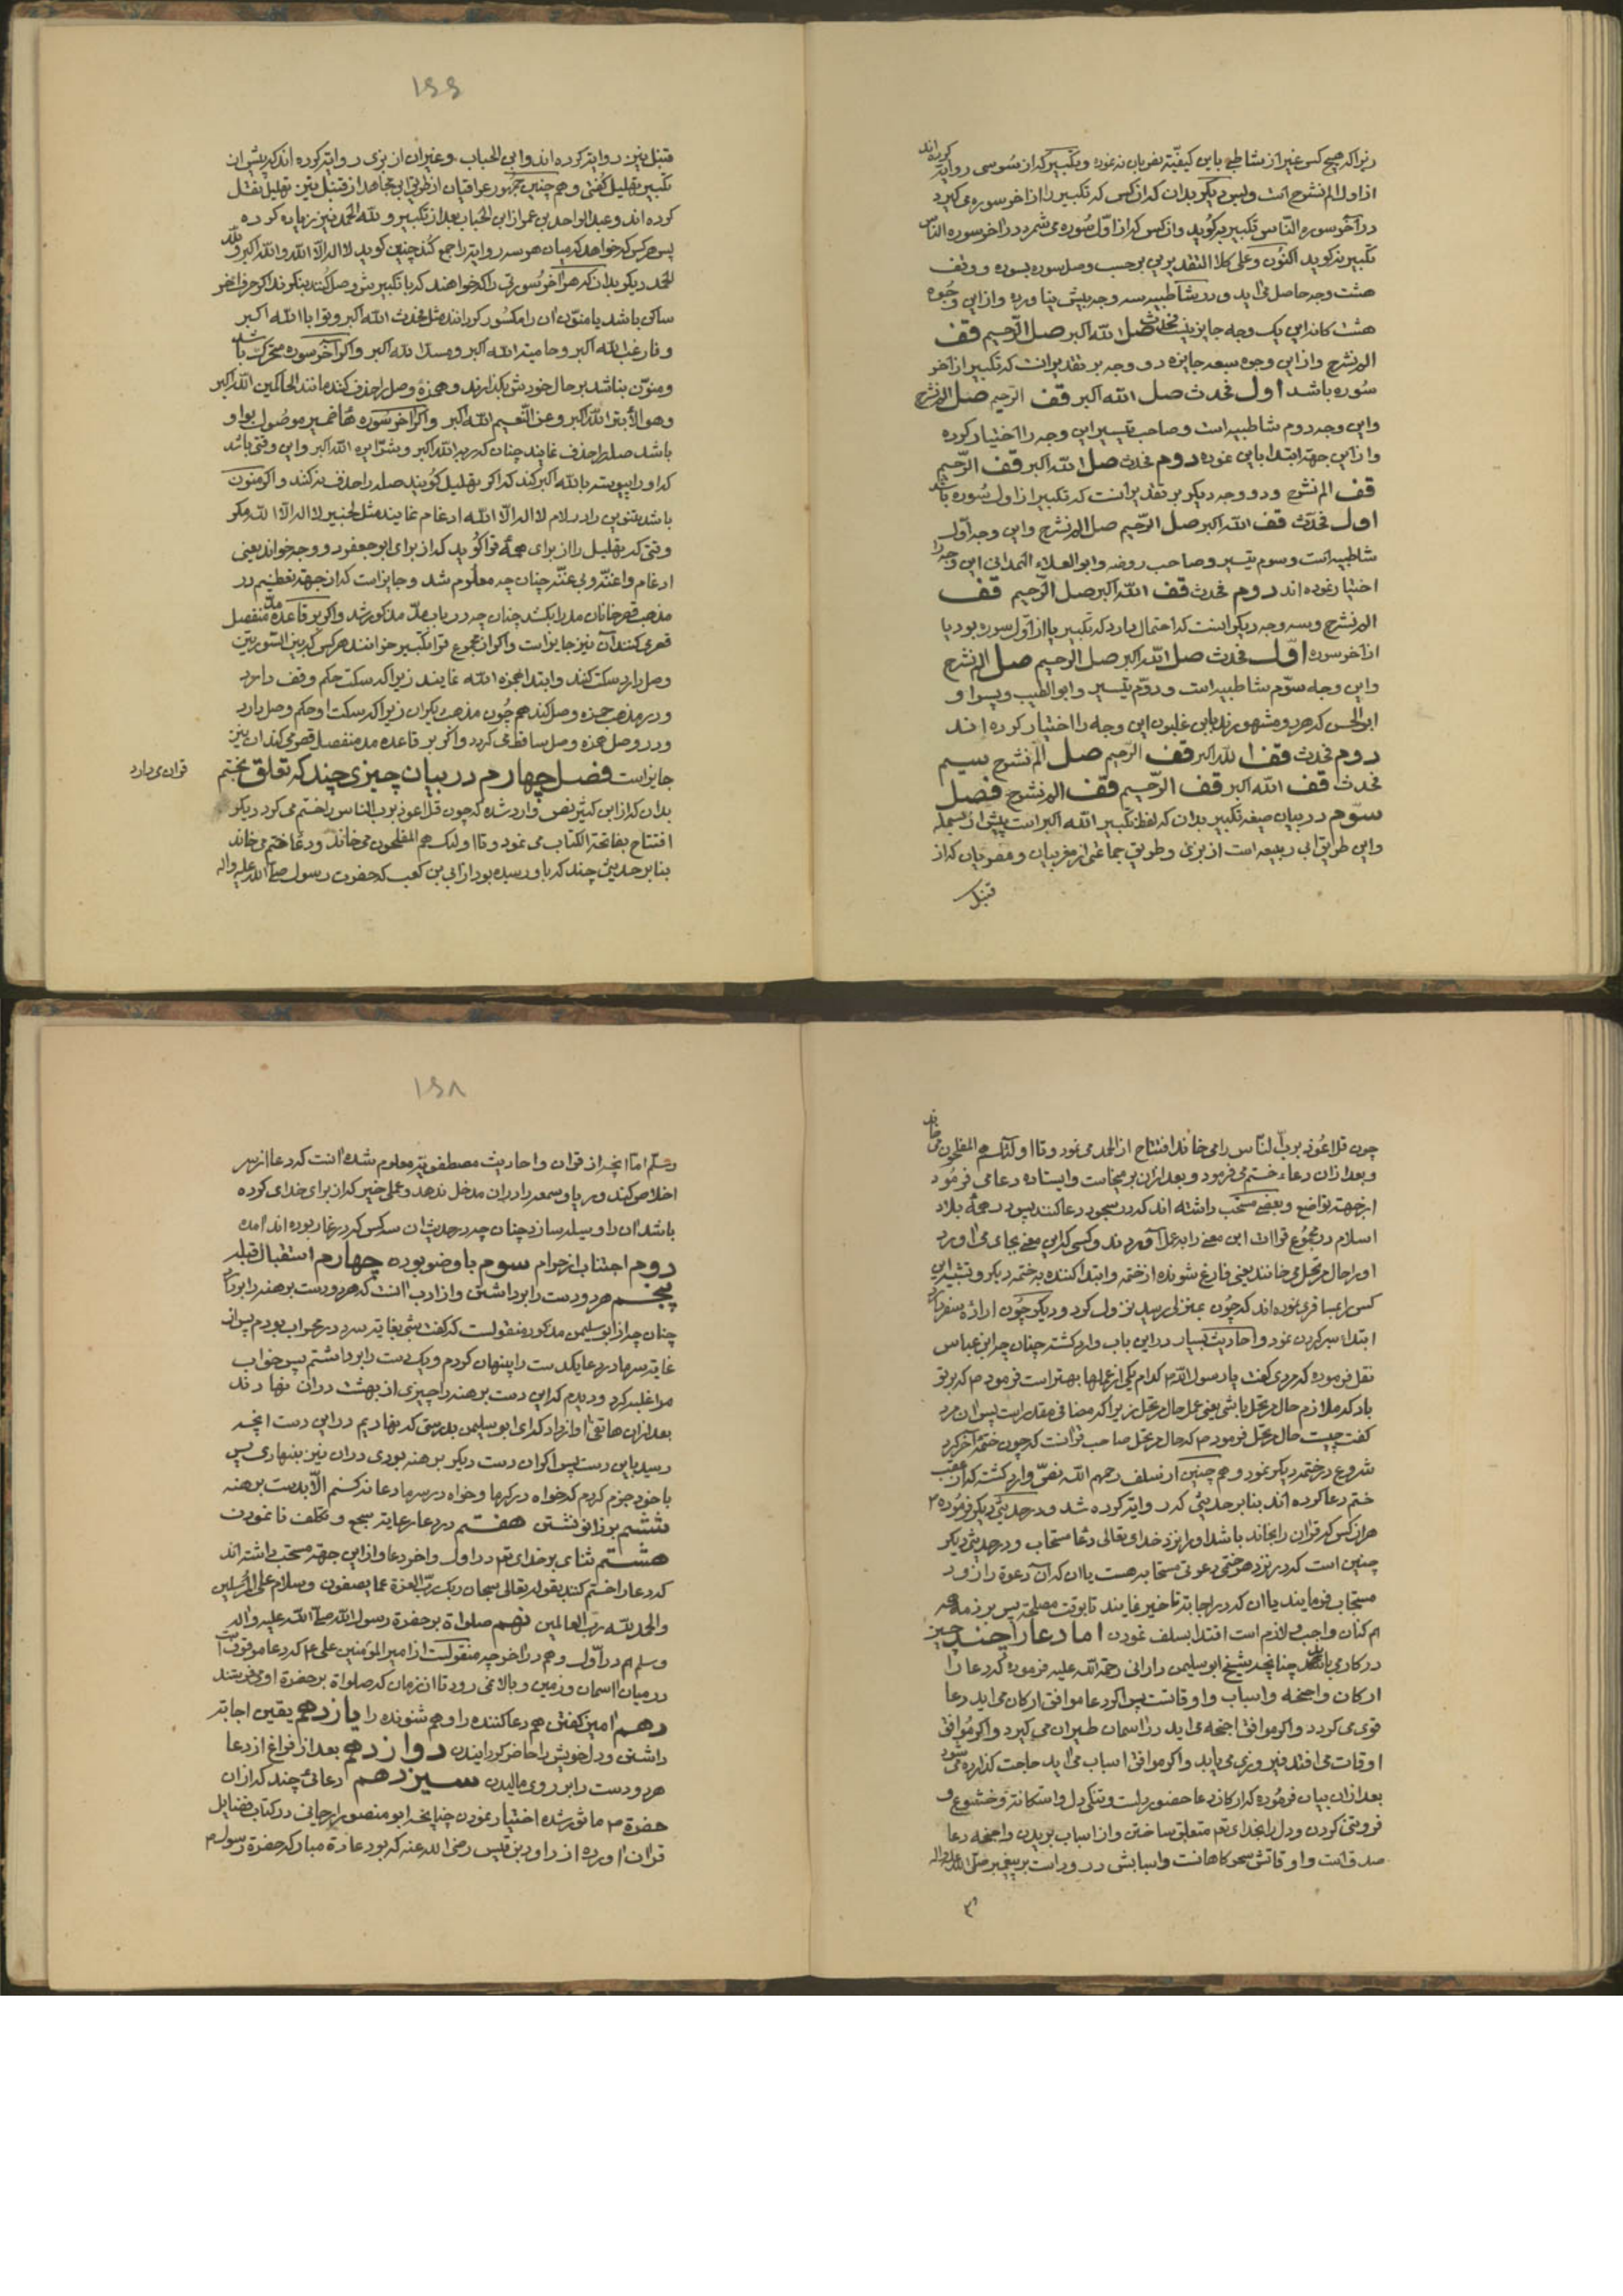 زیرا که هیچ کس غیر از شاطبی باین کیفیّة نفر بیان نه نموده و تکبیر که از سُوسی روایة کرده اند
از اول الم نشرح است و پس دیکر بدان که ان کس که تکبیر را از اخر سوره می کیرد
در آخر سوره النّاس تکبیر بر کُوید و ان کس که از اوّل سُوره می شمرد در اخر سوره النّاس
تکبیر نه کوید اکنُون و علی کلا التقدیرین بر حسب وصل سوره بسوره و وقف
هشت وجه حاصل می اید و در شاطبیه سه وجه بیش نیاورده و از این وجُوه
هشت کانه این یک وجه جایز نیست فحدث صل الله اکبر صل الرّحیم قف
الم نشرح و از این وجوه سبعه جایزه دو وجه بر تقدیر انست که تکبیر از اخر
سُوره باشد اول فحدث صل الله اکبر قف الرّحیم صل الم نشرح
و این وجه دوم شاطبیه است و صاحب تیسیر این وجه را اختیار کرده
و از این جهة ابتدا باین نموده دوم فحدث صل الله اکبر قف الرّحیم
قف الم نشرح و دو وجه دیکر بر تقدیر آنست که تکبیر از اول سُوره باشد
اول فحدّث قف الله اکبر صل الرّحیم صل الم نشرح و این وجه اوّل
شاطبیه است و سوم تیسیر و صاحب روضه و ابو العلاء الهمدانی این وجه را
اختیار نموده اند دوم فحدث قف الله اکبر صل الرّحیم قف
الم نشرح و سه وجه دیکر انست که احتمال دارد که تکبیر یا از اوّل سوره بود یا
از اخر سوره اوّل فحدث صل الله اکبر صل الرحیم صل الم نشرح
و این وجه سوّم شاطبیه است و دوّم تیسیر و ابو الطیب و پسر او
ابو الحسن که هر دو مشهورند بابن غلبون این وجه را اختیار کرده اند
دوم فحدث قف الله اکبر قف الرّحیم صل الم نشرح سیم
فحدث قف الله اکبر قف الرّحیم قف الم نشرح فصل
سوّم در بیان صیغه تکبیر بدان که لفظ تکبیر الله اکبر است پیش از بسمله
و این طریق ابی ربیعه است از بزی و طریق جماعتی از مغربیان و مصریان که از
قنبل
قنبل نیز روایة کرده اند و ابن الحباب و غیر ان از بزی روایة کرده اند که پیش از
تکبیر تهلیل کفتن و هم چنین جمهور عراقیان از طریق ابن مجاهد از قنبل نیز تهلیل نقل
کرده اند و عبد الواحد بن عمر از ابن الحباب بعد از تکبیر و لله الحمد نیز زیاده کرده
پس هر کس که خواهد که میان هر سه روایة را جمع کند چنین کوید لا اله الا الله و الله اکبر و لله
الحمد دیکر بدان که هر آخر سُورتی را که خواهند که با تکبیرش وصل کنند بنکرند اکر حرف اخر
ساکن باشد یا منوّن ان را مکسور کردانند مثل فحدث الله اکبر و توابا الله اکبر
و فارغب الله اکبر و حامیة الله اکبر و مسد الله اکبر و اکر آخر سوره متحرّک باشد
و منوّن نباشد بر حال خودش بکذارند و همزهٔ وصل را حذف کنند مانند الحاکمین الله اکبر
و هو الأبتر الله اکبر و عن النّعیم الله اکبر و اکر اخر سُوره هاء ضمیر موصُول بواو
باشد صله را حذف نمایند چنان که ربه الله اکبر و شرّا یره الله اکبر و این وقتی باشد
که او را پیوسته بالله اکبر کند که اکر بهلیل کُویند صله را حذف نه کنند و اکر منون
باشد تنوین را در لام لا اله الّا الله ادغام نمایند مثل لخبیر لا اله الّا الله مکر
وقتی که تهلیل را از برای همهٔ قرا کُوید که از برای ابو جعفر دو وجه خواند یعنی
ادغام واغنّه و بی غنّه چنان چه معلُوم شد و جایز است که از جهة تعظیم در
مذهب قصر خانان مد را بکشد چنان چه در باب مدّ مذکور شد و اکر بر قاعدهٔ مدّ منفصل
قصر کنند آن نیز جایز است و اکر از مجموع قرا تکبیر خوانند هر کس که بین السّورتین
وصل دارد سکت کنند و ابتدا بهمزه الله نمایند زیرا که سکت حکم وقف دارد
و در مذهب حمزه وصل کنند هم چُون مذهب دیکران زیرا که سکت او حکم وصل دارد
و در وصل همزه وصل ساقط می کردد و اکر بر قاعده مد منفصل قصر می کند ان نیز
جایز است فصل چهارم در بیان چیزی چند که تعلق بختم
قران می دارد
بدان که از ابن کثیر نص وارد شده که چون قل اعوذ برب الناس را ختم می کرد دیکر
افتتاح بفاتحة الکتاب می نمود و تا اولئک هم المفلحون می خاند و دعا ختم می خاند
بنا بر حدیثی چند که باو رسیده بود از ابی بن کعب که حضرت رسول صلّی الله علیه و اله
چون قل اعُوذ برب النّاس را می خاند افتتاح از الحمد می نمود و تا اولئک هم المفلحون می خاند
و بعد از ان دعاء ختم می فرمود و بعد از ان بر می خاست و ایستاده دعا می فرمُود
از جهة تواضع و بعضی مستحَب داشته اند که در سجود دعا کنند پس در همهٔ بلاد
اسلام در مجمُوع قراات این معنی را به عمل آورده ند و کسی که این معنی بجای می اورد
او را حال مرتحل می خانند یعنی فارغ شونده از ختمه و ابتدا کننده به ختمه دیکر و تشبیه این
کس را بمسافری نموده اند که چُون بمنزلی رسید نزول کرد و دیکر چُون ارادهٔ سفر دارد
ابتداء سیر کردن نمود و احادیث بسیار در این باب وارد کشته چنان چه ابن عباس
نقل فرموده که مردی کفت یا رسول الله م کدام یکی از عملها بهتر است فرمود م که بر تو
باد که ملازم حال مرتحل باشی یعنی عمل حال مرتحل زیرا که مضافی مقدر است پس ان مرد
کفت چیست حال مرتحل فرمود م که حال مرتحل صاحب قرانست که چون ختمهٔ آخر کرد
شروع در ختمه دیکر نمود و هم چنین از سلف رحمهم الله نصّی وارد کشته که از عقب
ختم دعا کرده اند بنا بر حدیثی که در روایة کرده شد و در حدیثی دیکر فرمُوده م
هر ان کس که قران را بخاند باشد او را نزد خدای تعالی دعا مستجاب و در حدیثی دیکر
چنین است که در نزد هر ختمی دعوتی مستجابه هست یا ان که آن دعوة را زود
مستجاب فرمایند یا ان که در اجابة تاخیر نمایند تا بوقت مصلحة پس بر زمهٔ همه
ام کنان واجب و لازم است اقتدا بسلف نمودن اما دعا را چند چیز
در کار می باشد چنانچه شیخ ابو سلیمن دارانی رحمة الله علیه فرموده که دعا را
ارکان و اجنحه و اسباب و اوقاتست پس اکر دعا موافق ارکان می اید دعا
قوی می کردد و اکر موافق اجنحه می اید در اسمان طیران می کیرد و اکر مُوافق
اوقات می افتد فیروزی می یابد و اکر موافق اسباب می اید حاجت کذارده می شود
بعد از ان بیان فرمُوده که ارکان دعا حضور دلست و تنکی دل و استکانة و خشُوع و
فروتنی کردن و دل را بخدای تعم متعلق ساختن و از اسباب بریدن و اجنحه دعا
صدق است و اوقاتش سحر کاهانست و اسبابش درود است بر پیغمبر صلی الله علیه و اله
وسلّم اما انچه از قران و احادیث مصطفویّه معلوم شده انست که دعا از سر
اخلاص کند و ریا و سمعه را در ان مدخل ندهد و عملی خیر که از برای خدای کرده
باشد ان را وسیله سازد چنان چه در حدیث ان سه کس که در غار بوده اند امده
دوم اجتناب از حرام سوم با وضو بوده چهارم استقبال قبله
پنجم هر دو دست را برداشتن و از ادب انست که هر دو دست برهنه را بردارد
چنان چه از ابو سلیمن مذکوره منقولست که کفت شبی بغایة سرد در محراب بودم پس از
غایة سرما در دعا یک دست را پنهان کردم و یک دست را برداشتم پس خواب
مرا غلبه کرد و دیدم که این دست برهنه را چیزی از بهشت در ان نهادند
بعد از ان هاتفی اواز داد که ای ابو سلیمن بدرستی که نهادیم در این دست انچه
رسید باین دست پس اکر ان دست دیکر برهنه بودی در ان نیز بنهادی پس
با خود جزم کردم که خواه در کرما و خواه در سرما دعا نه کنم الّا بدست برهنه
ششم بزانو نشستن هفتم در دعا رعایة سجع و تکلف نا نمودن
هشتم ثنای بر خدای تعم در اول و اخر دعا و از این جهة مستحب داشته اند
که دعا را ختم کنند بقوله تعالی سبحان ربک ربّ العزة عما یصفون و سلام علی المُرسلین
و الحمد لله ربّ العالمین نهم صلواة بر حضرة رسول الله صلّی الله علیه و اله
وسلم هم در اوّل و هم در اخر چه منقولست از امیر المؤمنین علی ع م که دعا موقوفست
در میان اسمان و زمین و بالا نمی رود تا ان زمان که صلواة بر حضرة او می فرستند
دهم امین کفتن هم دعا کننده را و هم شنونده را یازدهم یقین اجابة
داشتن و دل خویش را حاضر کردانیدن دوازدهم بعد از فراغ از دعا
هر دو دست را بر روی مالیدن سیزدهم دعائی چند که از ان
حضرة م ماثور شده اختیار نمودن چنانچه ابو منصور ارجانی در کتاب فضایل
قران اورده از داود بن قیس رضی الله عنه که بود عادة مبارکه حضرة رسول م
١٤٤
١٤٨